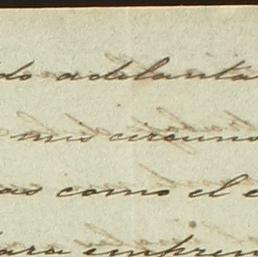 do adelanta
mis circuns
as como el e
ara empren